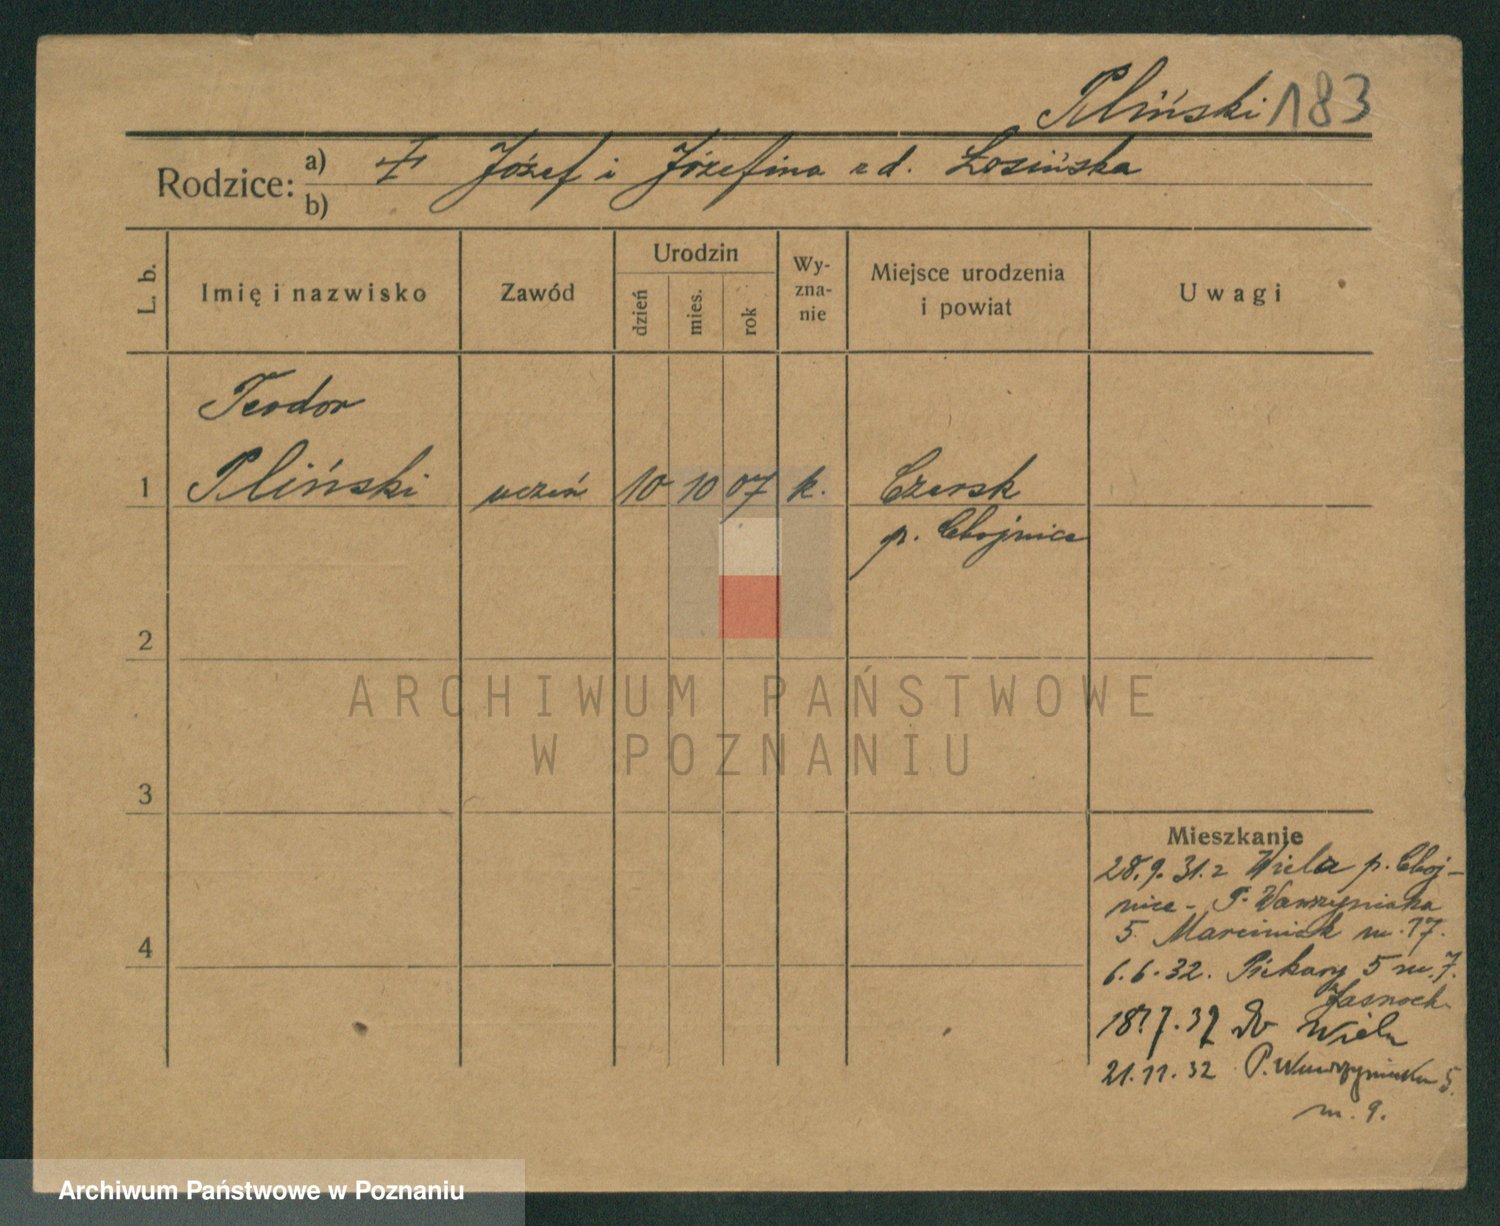 Pliński 183
Rodzice: a) Józef i Józefina z d. Łosińska
b)
L. b.
Imię i nazwisko
Zawód
Urodzin
dzień
mies.
rok
Wy-
zna-
nie
Miejsce urodzenia
i powiat
Uwagi
Teodor
1 Pliński uczeń 10 10 07 k. Czersk
p. Chojnice
2
3
4
ARCHIWUM PAŃSTWOWE
W POZNANIU
Mieszkanie
28.9.31. z Wiela p. Choj-
nice - P. Wawrzyniaka
5 Marciniak m. 17.
6.6.32. Piekary 5 m. 7.
18.7.32 do Wiela
21.11.32 P. Wawrzyniaka 5.
m. 9.
Archiwum Państwowe w Poznaniu